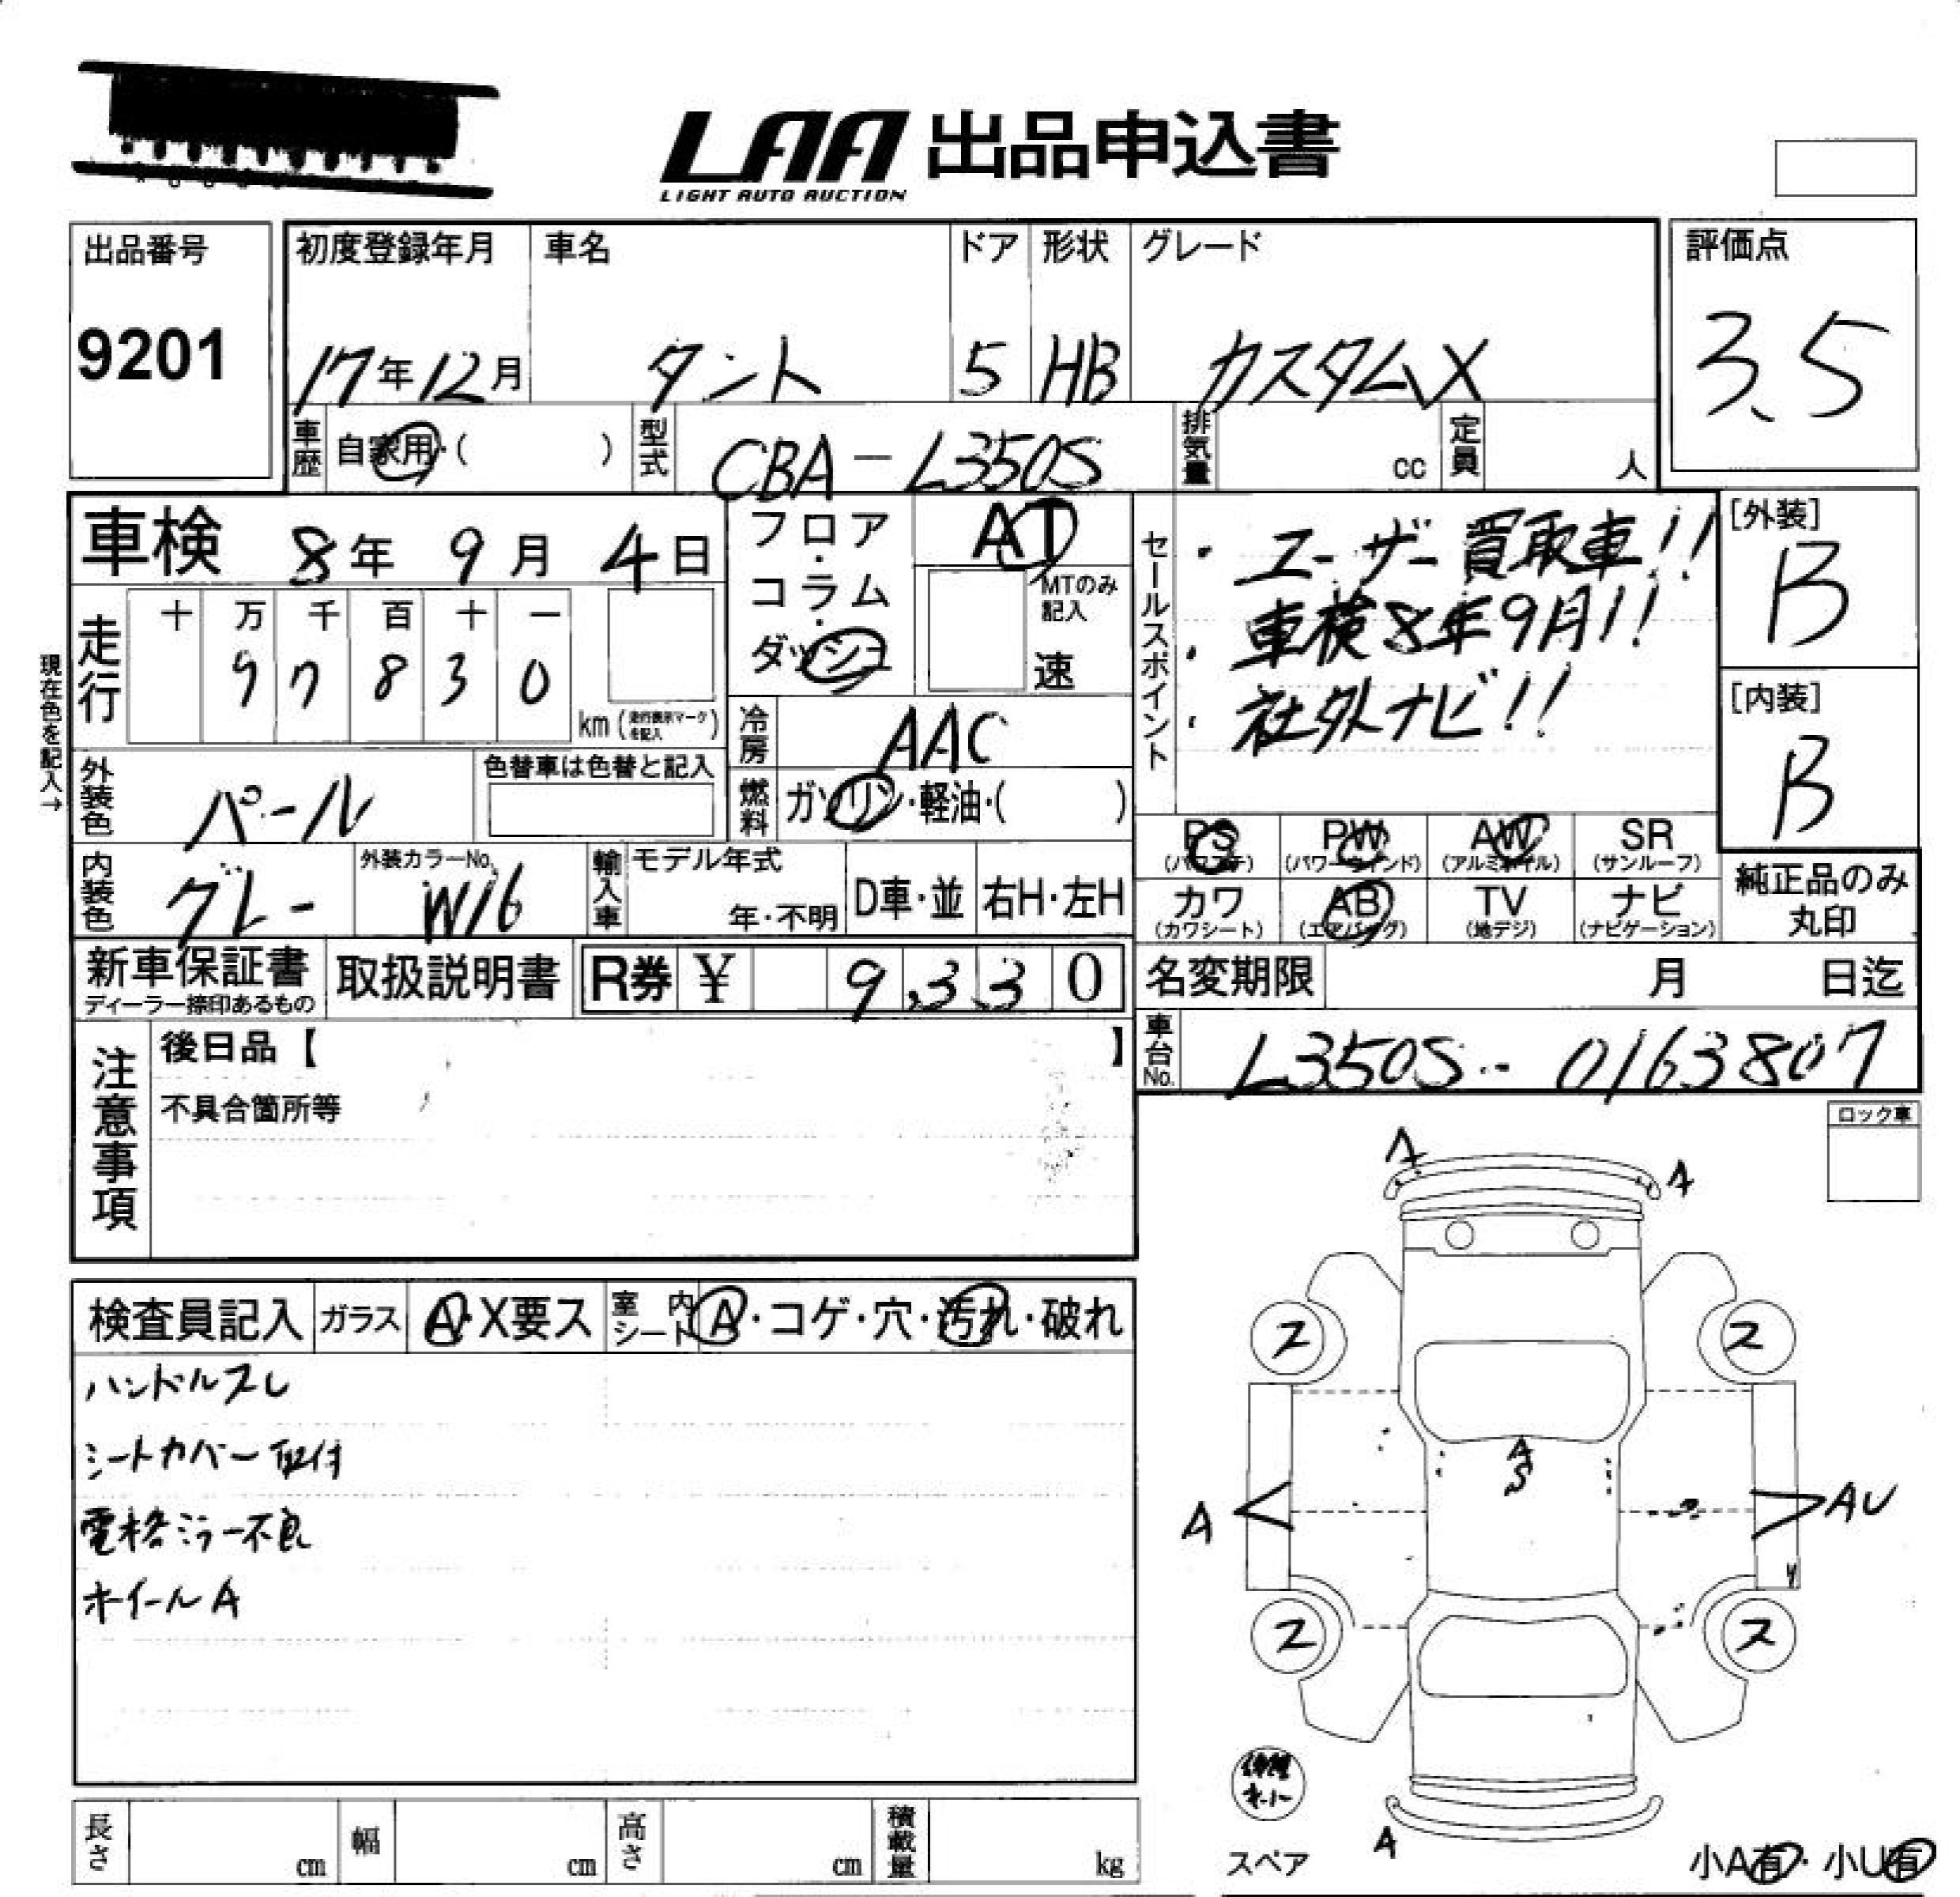 LAA 出品申込書
LIGHT AUTO AUCTION
出品番号
9201
初度登録年月
17年12月
車名
タント
ドア
5
形状
HB
グレード
カスタムX
評価点
3.5
車歴 自家用・( )
型式 CBA-L350S
排気量 cc
定員 人
車検 8年 9月 4日
フロア・コラム・ダッシュ
AT
MTのみ記入
速
セールスポイント
・ユーザー買取車!!
・車検8年9月!!
・社外ナビ!!
[外装]
B
[内装]
B
現在色を記入→
走行
十 万 千 百 十 一
9 7 8 3 0
km (走行表示マークを記入)
冷房 AAC
外装色 パール
色替車は色替と記入
燃料 ガソリン・軽油・( )
PS (パワステ)
PW (パワーウインド)
AW (アルミホイル)
SR (サンルーフ)
カワ (カワシート)
AB (エアバッグ)
TV (地デジ)
ナビ (ナビゲーション)
純正品のみ丸印
内装色 グレー
外装カラーNo. W16
輸入車
モデル年式
年・不明
D車・並
右H・左H
新車保証書
ディーラー捺印あるもの
取扱説明書
R券 ¥ 9,330
名変期限 月 日迄
車台No. L350S-0163807
注意事項
後日品【 】
不具合箇所等
ロック車
検査員記入
ガラス A・X要ス
室内シート A・コゲ・穴・汚れ・破れ
ハンドルスレ
シートカバー取付
電格ミラー不良
ホイールA
A
A
ス
ス
A
S
A
AU
ス
ス
修理キット
スペア
A
小A有・小U有
長さ cm
幅 cm
高さ cm
積載量 kg